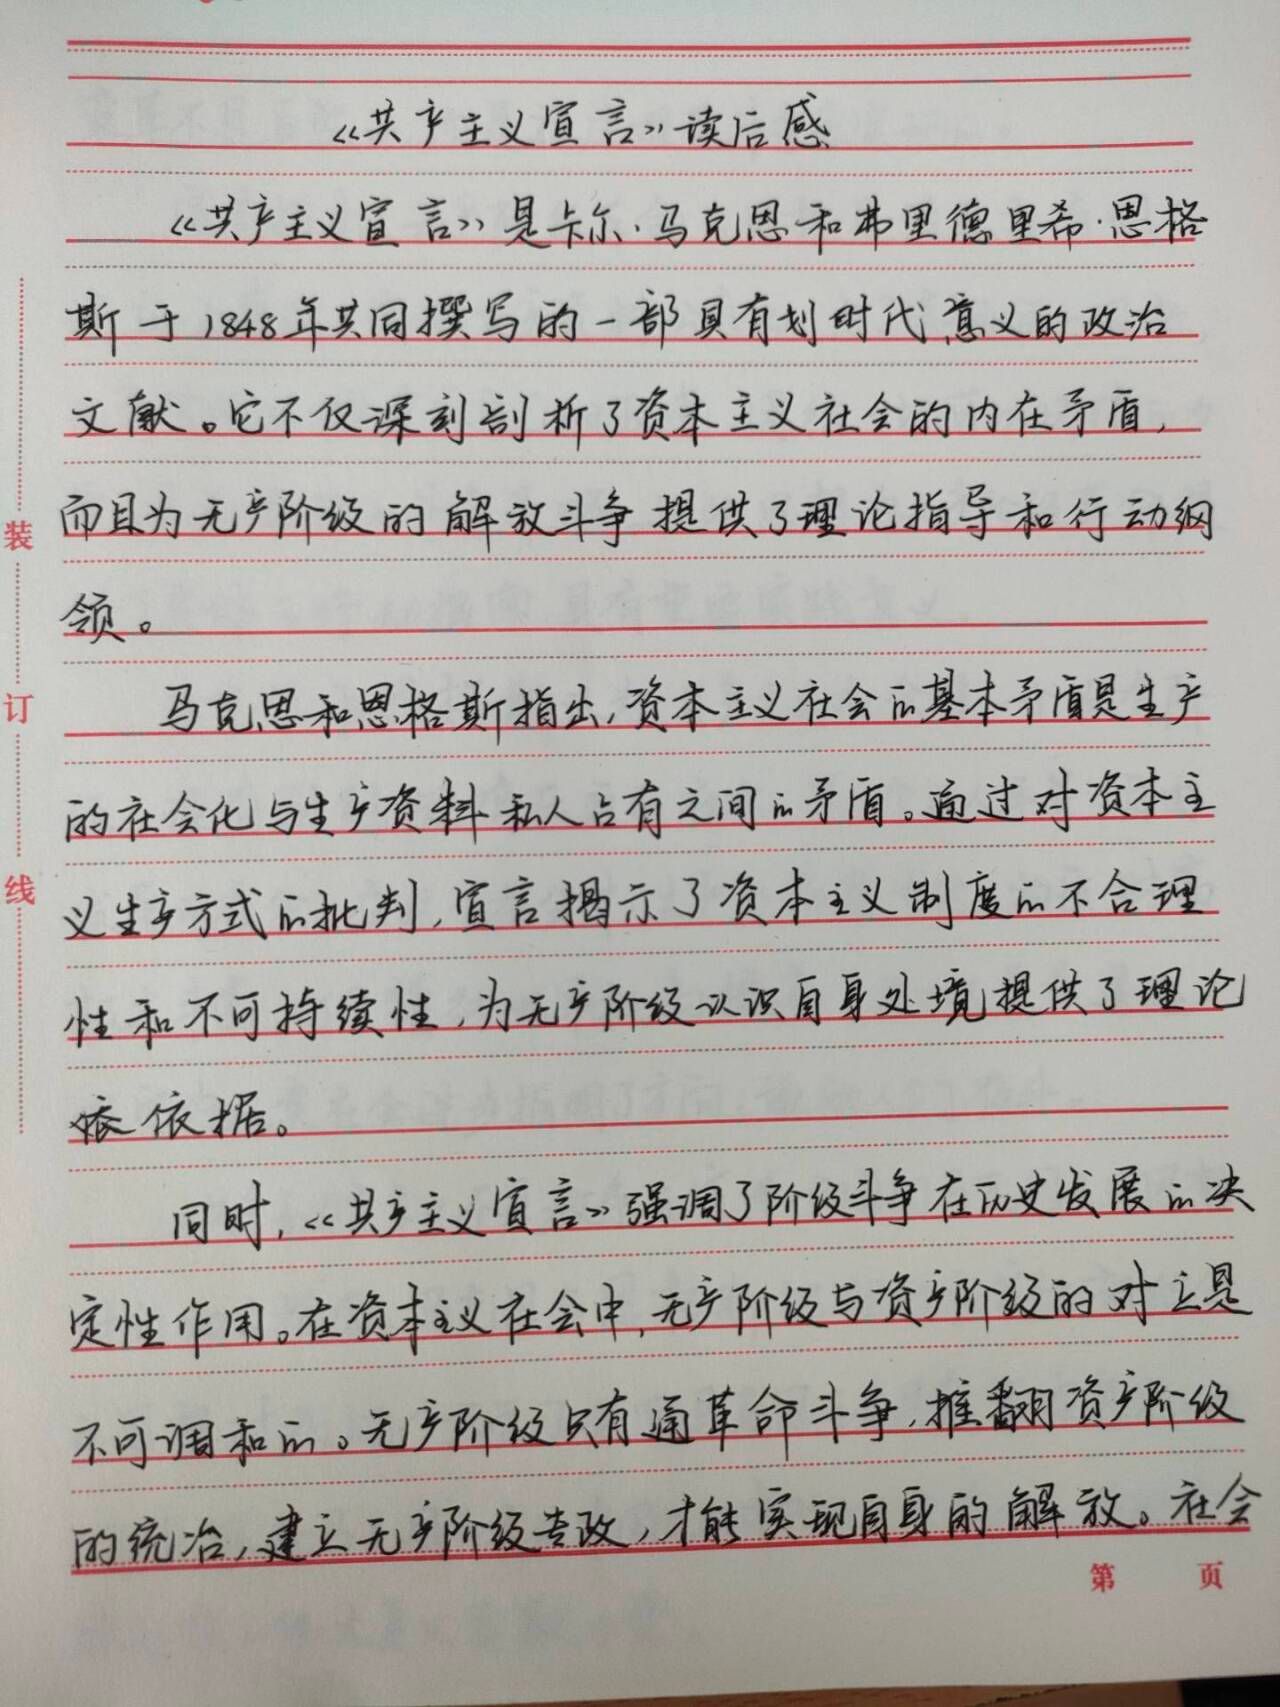 《共产主义宣言》读后感
《共产主义宣言》是卡尔·马克思和弗里德里希·恩格
斯于1848年共同撰写的一部具有划时代意义的政治
文献。它不仅深刻剖析了资本主义社会的内在矛盾，
而且为无产阶级的解放斗争提供了理论指导和行动纲
领。
马克思和恩格斯指出，资本主义社会的基本矛盾是生产
的社会化与生产资料私人占有之间的矛盾。通过对资本主
义生产方式的批判，宣言揭示了资本主义制度的不合理
性和不可持续性，为无产阶级认识自身处境提供了理论
依依据。
同时，《共产主义宣言》强调了阶级斗争在历史发展的决
定性作用。在资本主义社会中，无产阶级与资产阶级的对立是
不可调和的。无产阶级只有通革命斗争，推翻资产阶级
的统治，建立无产阶级专政，才能实现自身的解放。社会
装
订
线
第 页